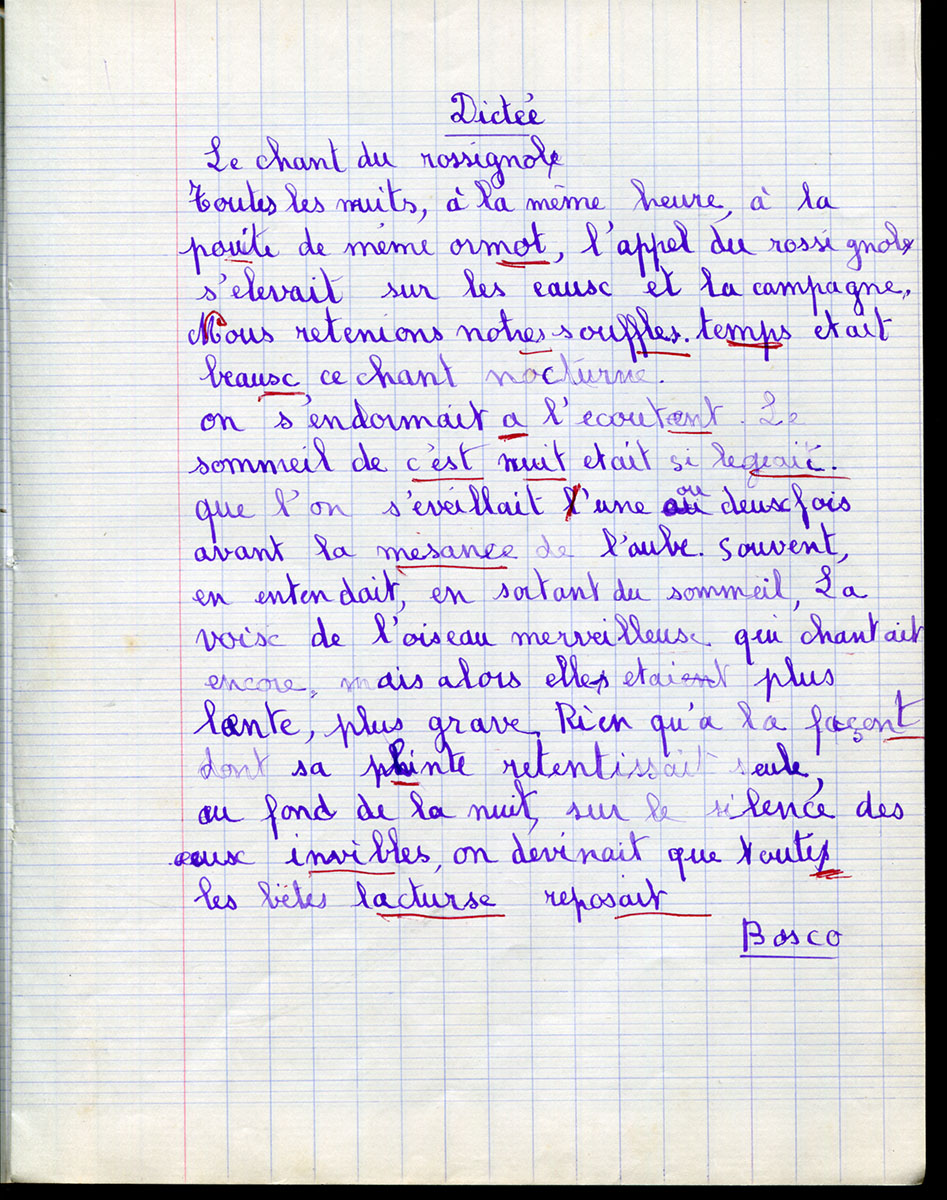 Dictée
Le chant du rossignole
Toutes les nuits, à la même heure, à la
pouite de même ormot, l'appel du rossi gnole
s'elevait sur les eausc et la campagne.
Nous retenions notres souffles. temps etait
beausc ce chant nocturne.
on s'endormait a l'ecoutent. Le
sommeil de c'est nuit etait si legeait.
que l'on s'éveillait l'une ou deusc fois
avant la mesance de l'aube. Souvent,
en entendait, en sortant du sommeil, La
voisc de l'oiseau merveilleusc qui chantait
encore, mais alors elles etaient plus
lente, plus grave. Rien qu'à la façont
dont sa plinte retentissait seule,
au fond de la nuit, sur le silence des
eausc invibles, on devinait que toutes
les bêtes lacturse reposait
Bosco